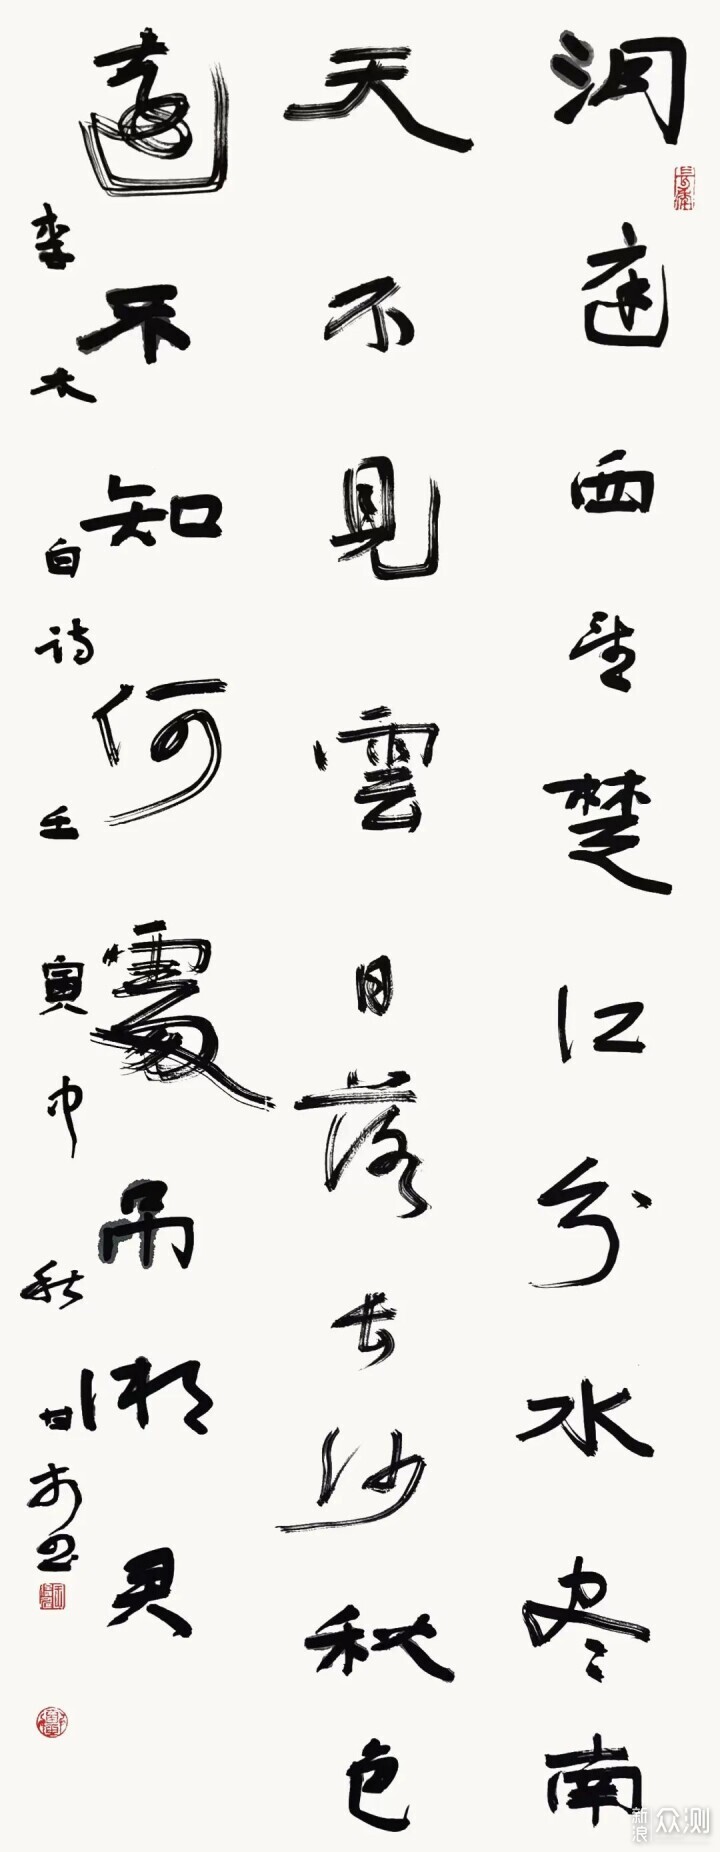 洞庭西望楚江分水尽南
天不見雲日落长沙秋色
遠不知何處吊湘君
李太白诗壬寅中秋
新浪众测